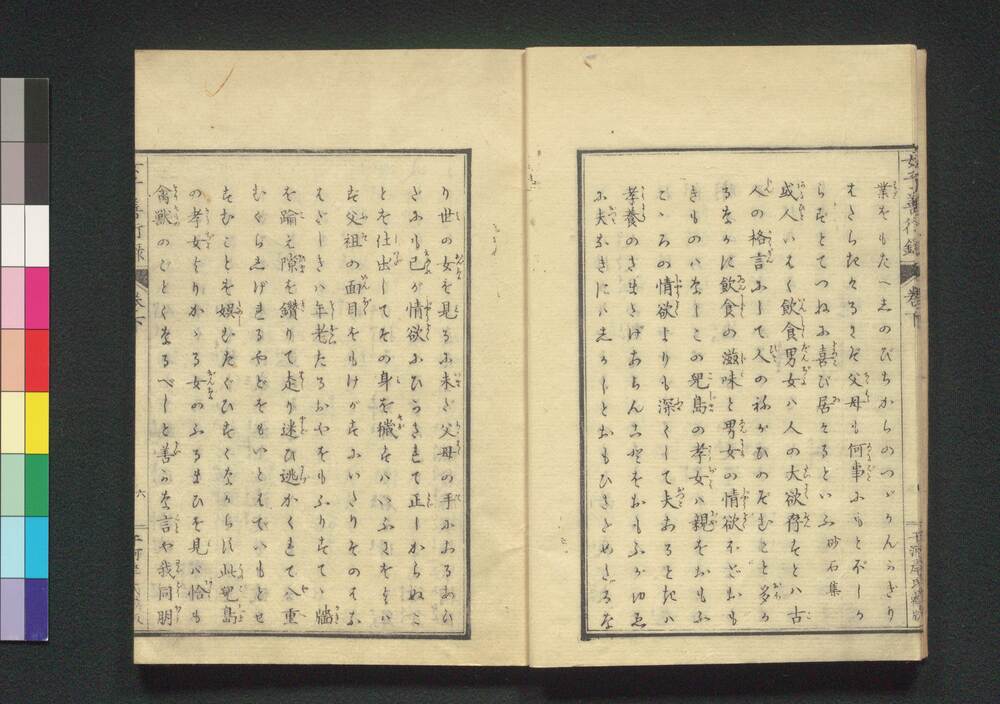 業をもたへ志のびちからのつゞかんかぎり
はたらきけるにぞ父母も何事にもと
らずとてつねに喜び居たるといふ 砂石集
或人いはく飲食男女ハ人の大欲存すとハ古
人の格言にして人の祢がひのぞむこと多か
るなかに飲食の滋味と男女の情欲ホどおも
きものハなしこの児島の孝女ハ親をおもふ
こゝろの情欲よりも深くして夫あるときハ
孝養のさまたげあらん事をおもふがゆゑ
に夫なきにハ志かじとおもひさだめたるな
り世の女を見るに未ダ父母の手にあるあひ
だにも已が情欲にひかされて正しからぬこ
とを仕出してその身を穢すハいふにをよば
ず父祖の面目をもけがすにいたりそのはな
はだしきハ年老たるおやをもふりすてゝ牆
を踰え隙を鑽りて走り迷ひ逃かくれて八重
むぐらしげれるやどをもいとはでいもとせ
すむことを娯むたぐひすくなからず此児島
の孝女よりかゝる女のふるまひを見バ恰も
禽獣のごとくなるべしと善かな言や我同朋
善行録
巻下
六